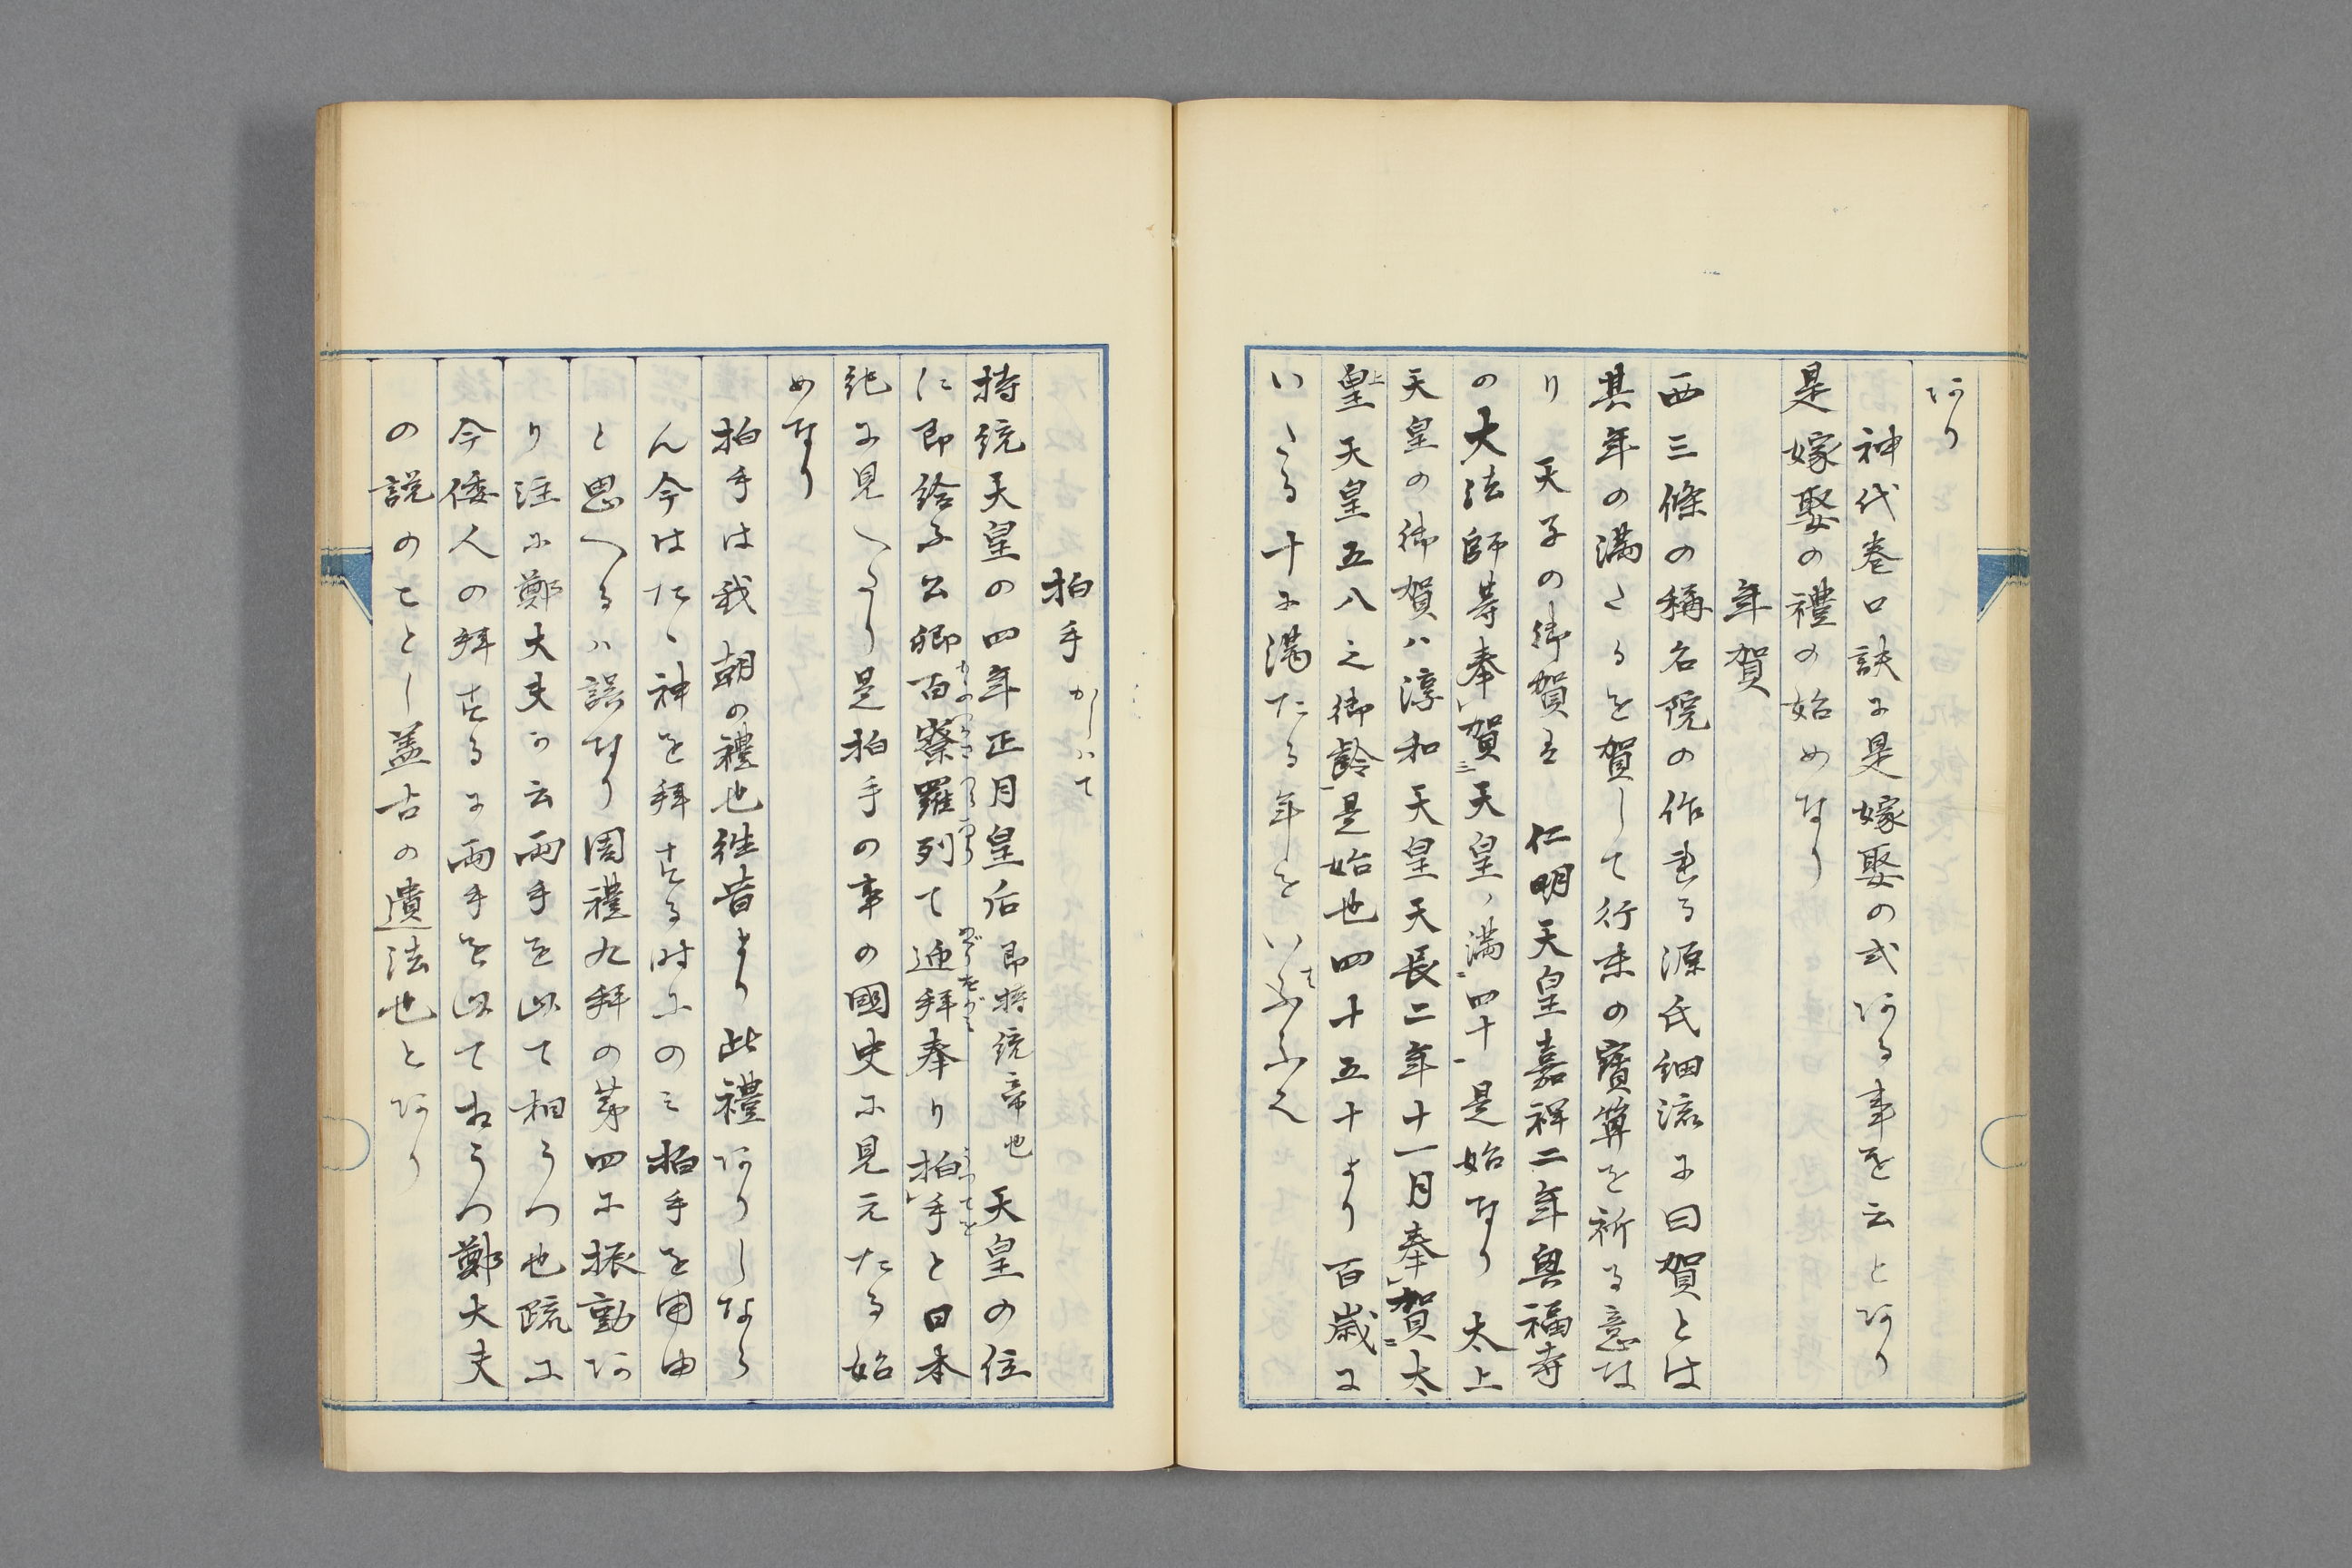 あり
神代巻口訣に是嫁娶の式ある事を云とあり
是嫁娶の禮の始めなり
年賀
西三條の稱名院の作れる源氏細流に曰賀とは
其年の満たるを賀して行末の寶算を祈る意な
り 天子の御賀は 仁明天皇嘉祥二年興福寺
の大法師等奉賀天皇ノ満四十是始なり 太上
天皇の御賀ハ淳和天皇天長二年十一月奉賀太
上皇天皇五八之御齡是始也四十五十より百歳に
いたる十に満たる年をいはふなり
拍手 かしハて
持統天皇の四年正月皇后 即持統帝也 天皇の位
に即給ふ公卿百寮羅列て迊拝奉り拍手と日本
紀に見へたり是拍手の事の國史に見元たる始
めなり
拍手は我 朝の禮也徃昔より此禮ありしなら
ん今はたゝ神を拝する時にのミ拍手を用由
と思へるハ誤なり周禮九拝の第四に振動あ
り注に鄭大夫か云兩手を以て相うつ也疏に
今倭人の拜するに兩手を以て相うつ鄭大夫
の説のことし蓋古の遺法也とあり